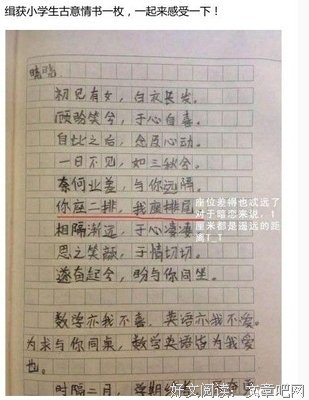 缉获小学生古意情书一枚，一起来感受一下！
暗恋
初见有女，白衣长发。
顾盼笑兮，于心自喜。
自此之后，念及心动。
一日不见，如三秋兮。
奈何业差，与你远隔
你座二排，我座排尾
座位差得也忒远了
对于暗恋来说，1
厘米都是遥远的距
离T_T
相隔渐远，于心凄凄
思之笑颜，于情切切。
遂奋起兮，盼与你同坐。
数学亦我不喜，英语亦我不爱。
为求与你同桌，数学英语皆为我爱
也。
时隔二月，学期终
好文阅读：文章吧网